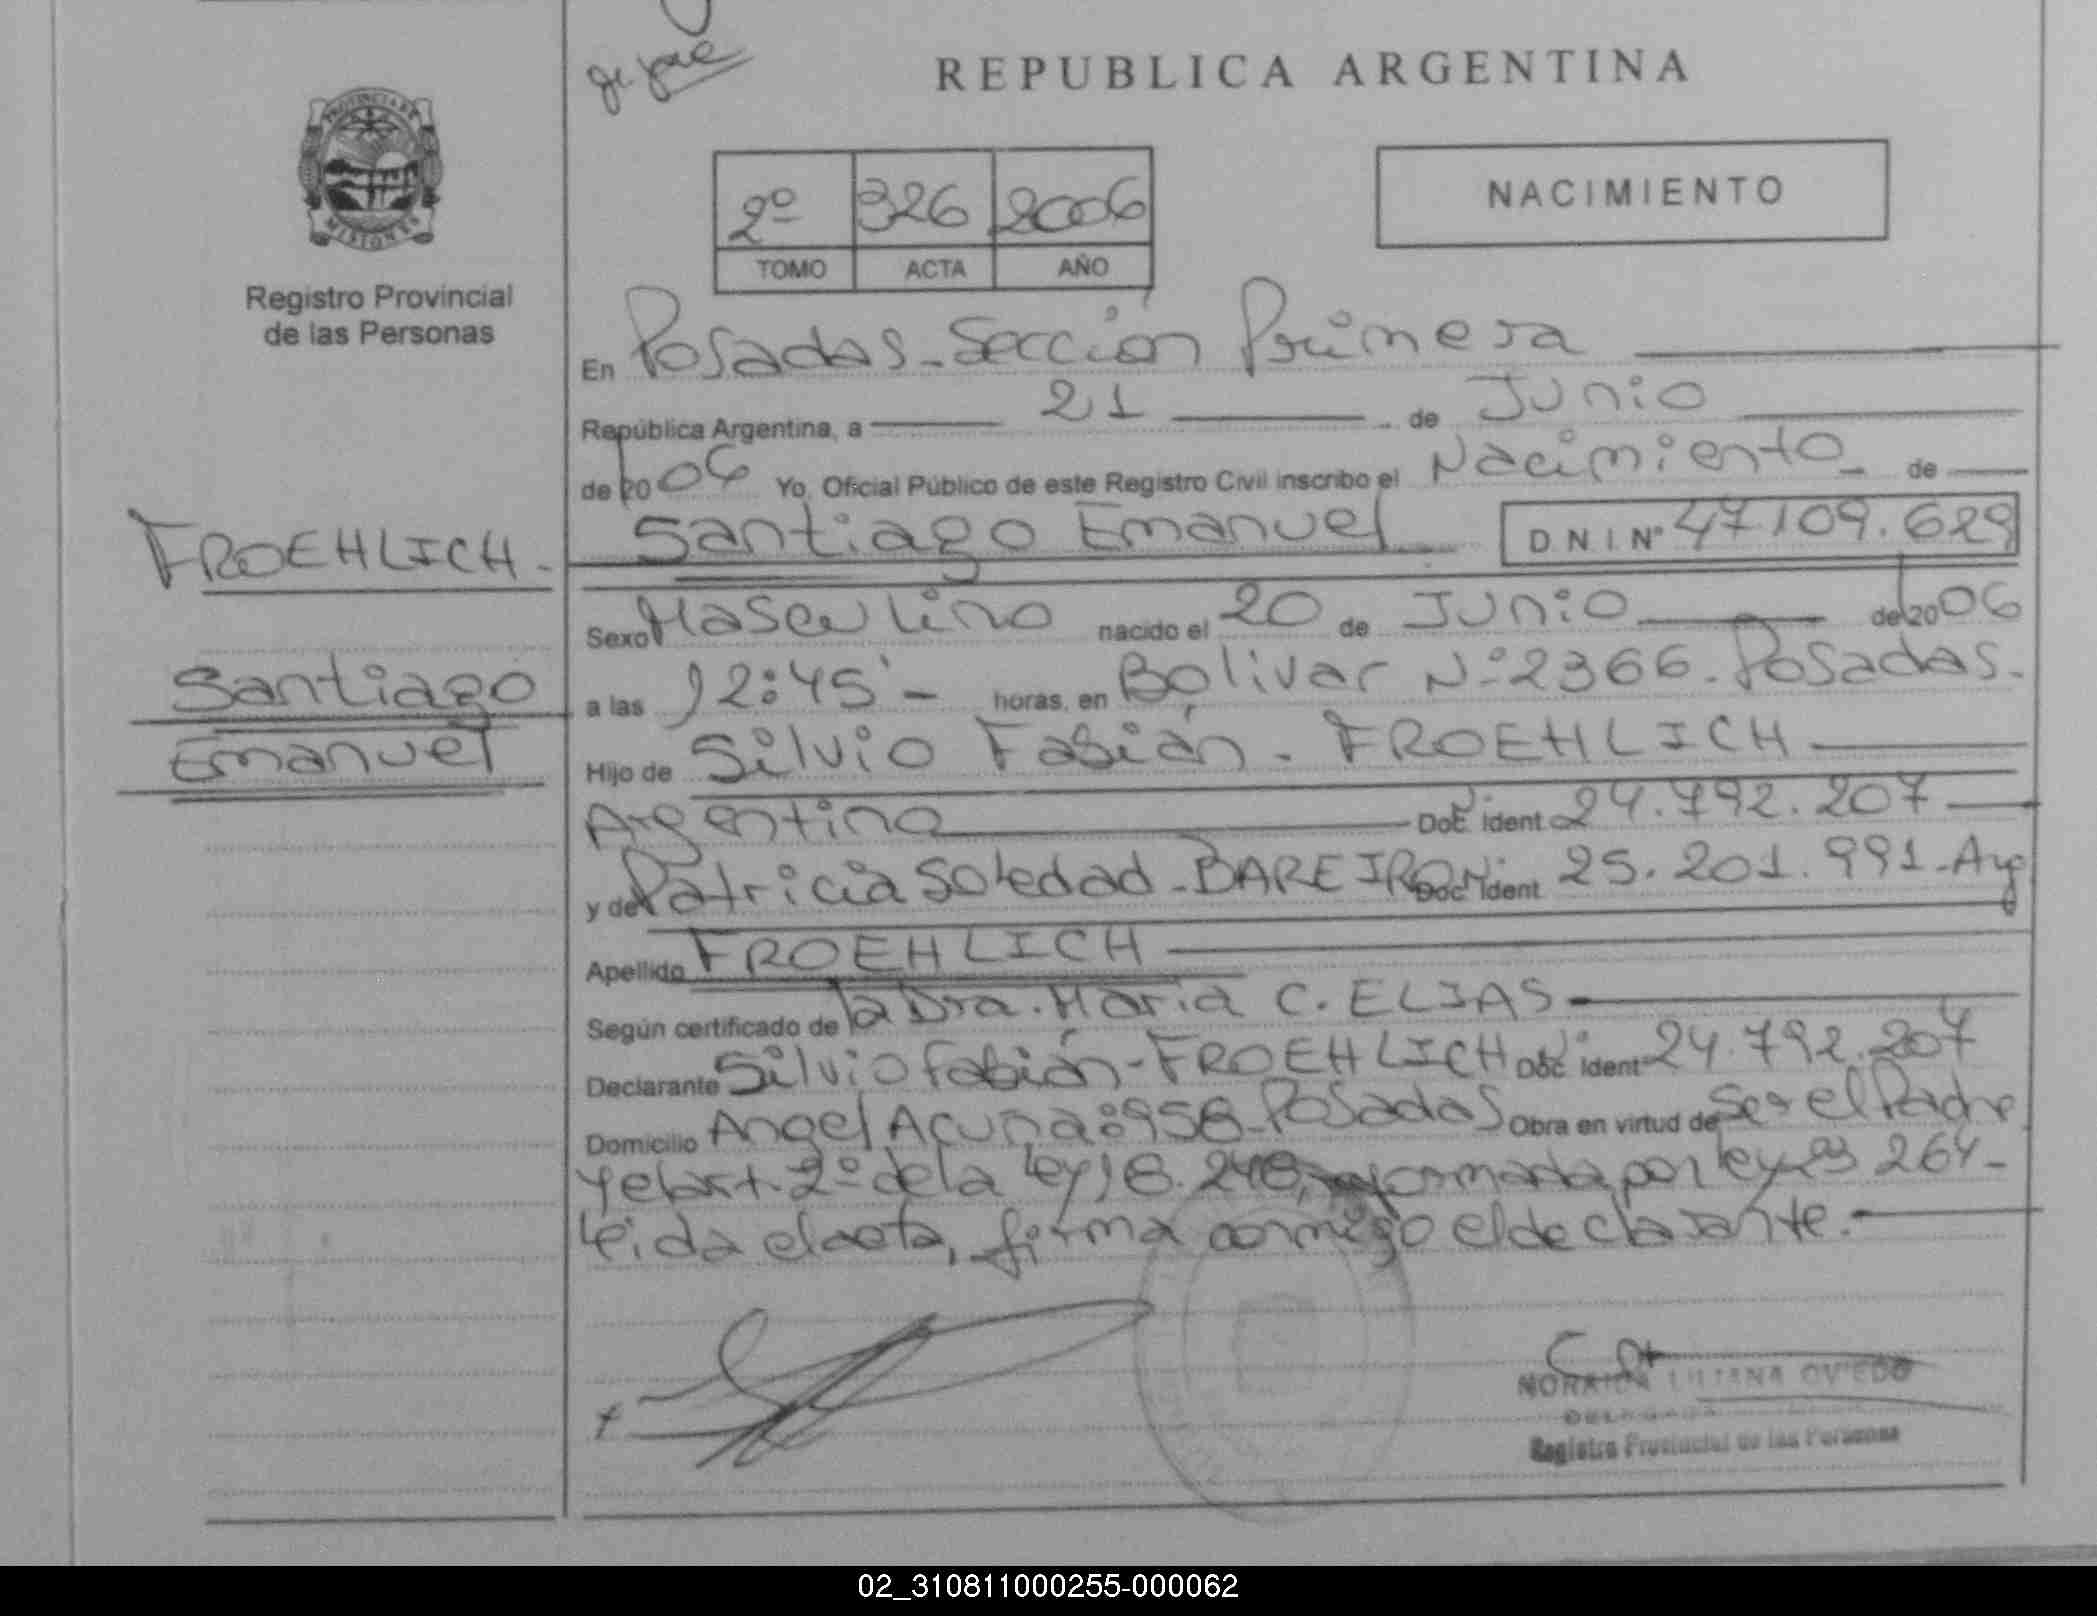 REPUBLICA ARGENTINA
PROVINCIA DE
MISIONES
Registro Provincial
de las Personas
2º 326 2006
TOMO ACTA AÑO
NACIMIENTO
En Posadas - Sección Primera
República Argentina, a 21 de Junio
de 2006 Yo, Oficial Público de este Registro Civil inscribo el Nacimiento - de
Santiago Emanuel DNI Nº 47109.629
FROEHLICH -
Santiago
Emanuel
Sexo Masculino nacido el 20 de Junio de 2006
a las 12:45' - horas, en Bolivar Nº 2366 - Posadas -
Hijo de Silvio Fabián - FROEHLICH
Argentino Doc. ident 24.792.207
y de Patricia Soledad - BAREIRO Doc. ident 25.201.991 - Arg
Apellido FROEHLICH
Según certificado de la Dra. Maria C. ELIAS
Declarante Silvio Fabián - FROEHLICH Doc. ident 24.792.207
Domicilio Angel Acuña: 958 - Posadas Obra en virtud de Ser el Padre
y el art. 2º de la ley 18.248, reformada por ley 23 264 -
leida el acta, firma conmigo el declarante.
LILIANA OVIEDO
Registro Provincial de las Personas
02_310811000255-000062